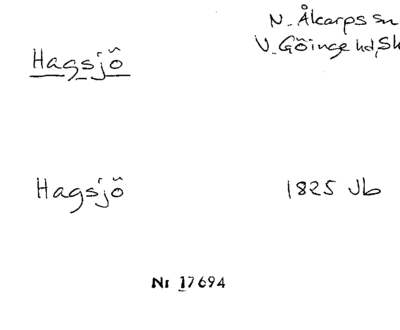 N. Åkarps sn
V. Göinge hd, Sk
Hagsjö
Hagsjö 1825 Jb
Nr 17694